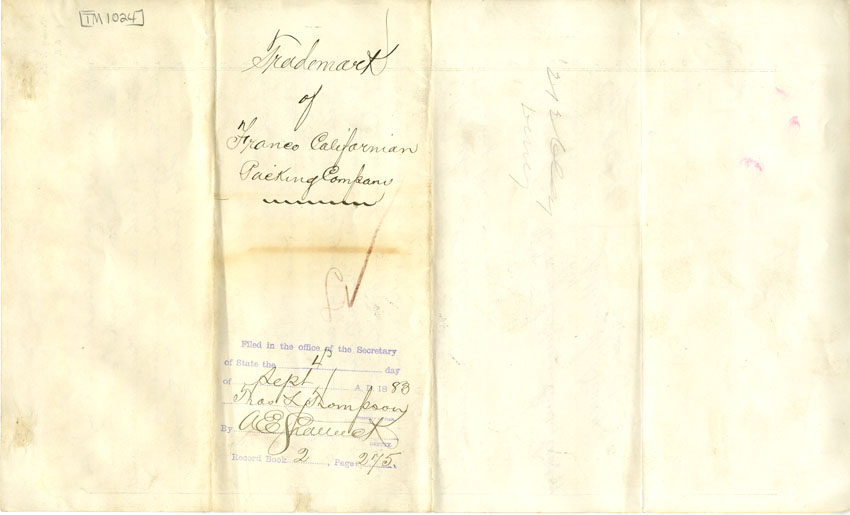 [TM1024]
Trademark
of
Franco Californian
Packing Company
Filed in the office of the Secretary
of State the 4th day
of Sept A. D. 1883
Thos L Thompson
By A E
Record Book 2, Page 275.